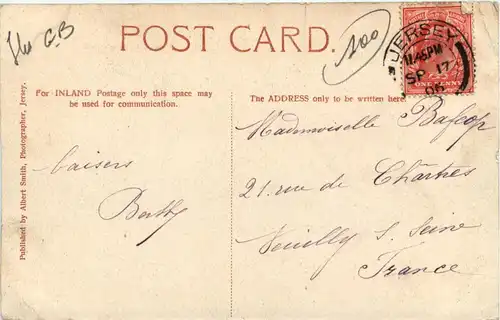 G.B
POST CARD.
100
JERSEY
11.45PM
SP 17
For INLAND Postage only this space may
be used for communication.
The ADDRESS only to be written here.
Published by Albert Smith, Photographer, Jersey.
baisers
Berthy
Mademoiselle
21 rue de Chartres
Neuilly s. Seine
France